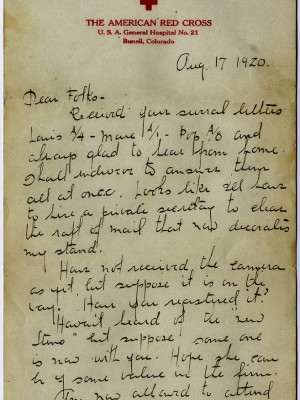 THE AMERICAN RED CROSS
U. S. A. General Hospital No. 21
Bunell, Colorado
Aug. 17 1920.
Dear Folks-
Received your letters
and
always glad to hear from home.
Should to answer them
all at once. Looks like I'll have
to hire a private secretary to clear
the raft of mail that now decorates
my stand.
Have not received the camera
as yet, but suppose it is on the
way. Have you registered it?
Haven't heard of the "new
Steno" but suppose some one
is now with you. Hope she can
be of some value in the firm.
now allowed to attend